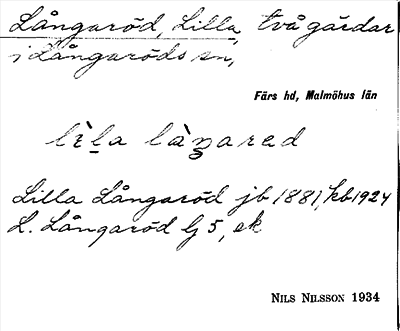 Långaröd, Lilla, två gårdar
i Långaröds sn,
Färs hd, Malmöhus län
lìla làŋared
Lilla Långaröd jb 1881, kb 1924
L. Långaröd Gj 5, ek
NILS NILSSON 1934